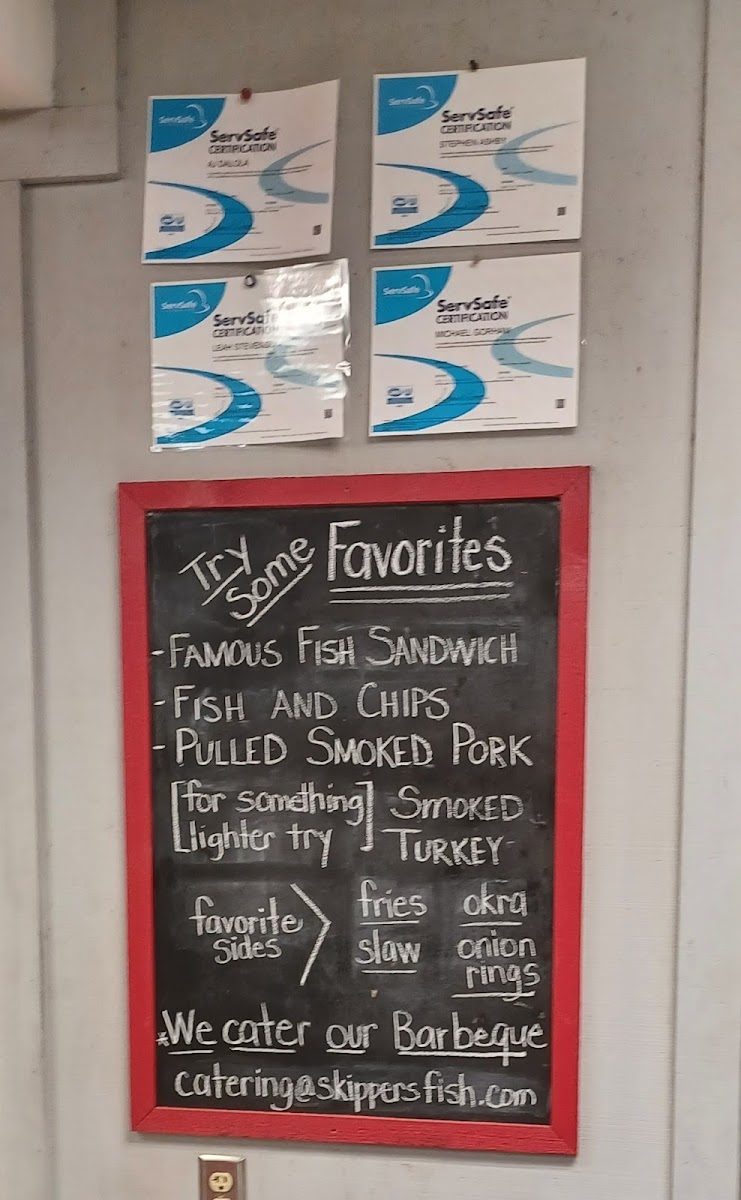 ServSafe
ServSafe
CERTIFICATION
ServSafe
ServSafe
CERTIFICATION
STEPHEN ASHBY
ServSafe
ServSafe
CERTIFICATION
LEAH STEVENS
ServSafe
ServSafe
CERTIFICATION
MICHAEL GORHAM
Try Some Favorites
- FAMOUS FISH SANDWICH
- FISH AND CHIPS
- PULLED SMOKED PORK
[for something lighter try] SMOKED TURKEY
favorite sides > fries okra
slaw onion rings
*We cater our Barbeque
catering@skippersfish.com